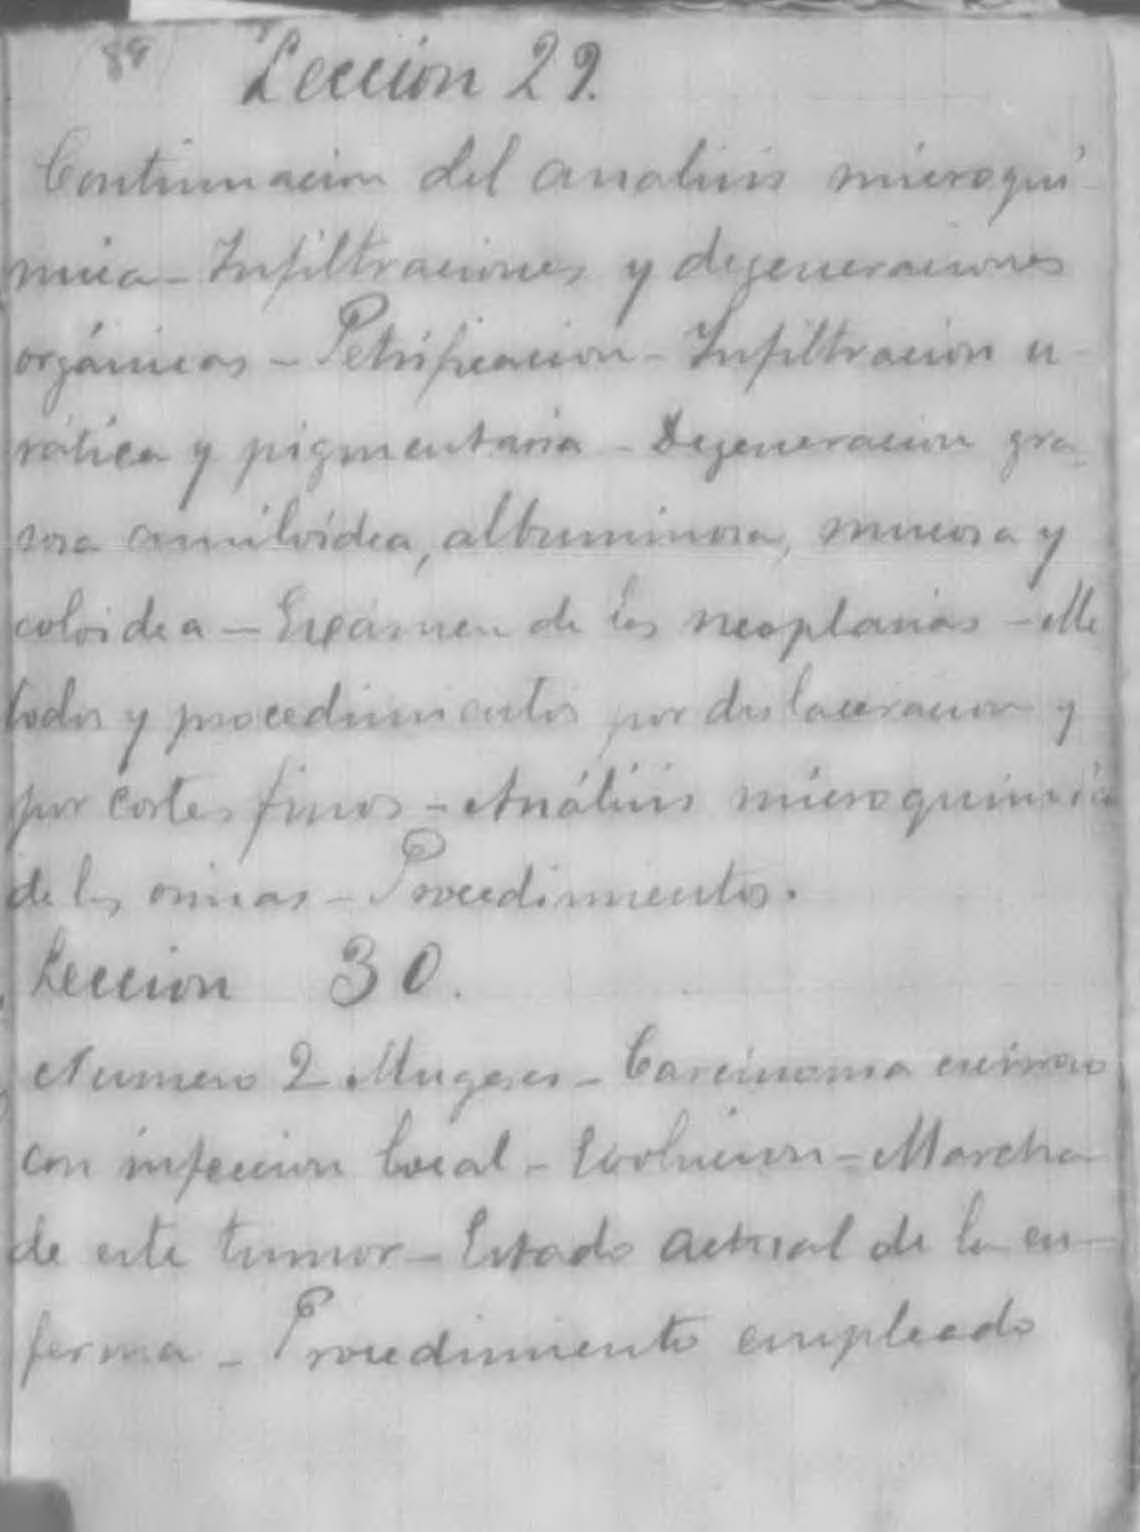 89
Leccion 29.
Continuacion del analisis microquí-
mica - Infiltraciones y degeneraciones
orgánicas - Petrificacion - Infiltracion u-
rática y pigmentaria - Degeneracion gra-
sosa amiloidea, albuminosa, mucosa y
coloidea - Exámen de las neoplasias - Me
todos y procedimientos por dislaceracion y
por cortes finos - Análisis microquimico
de las orinas - Procedimientos.
Leccion 30.
Numero 2 Mugeres - Carcinoma
con infeccion local - Evolucion - Marcha
de este tumor - Estado actual de la en-
ferma - Procedimiento empleado